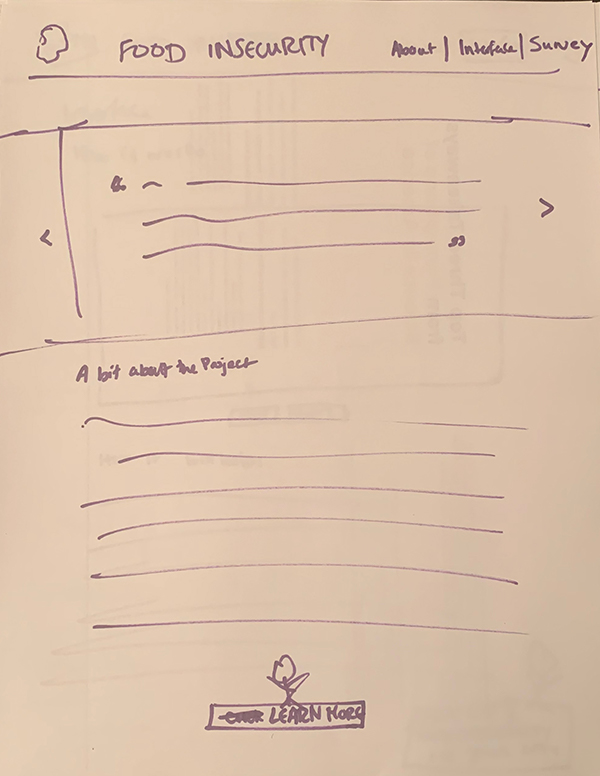 FOOD INSECURITY About | Interface | Survey
A bit about the Project
LEARN MORE